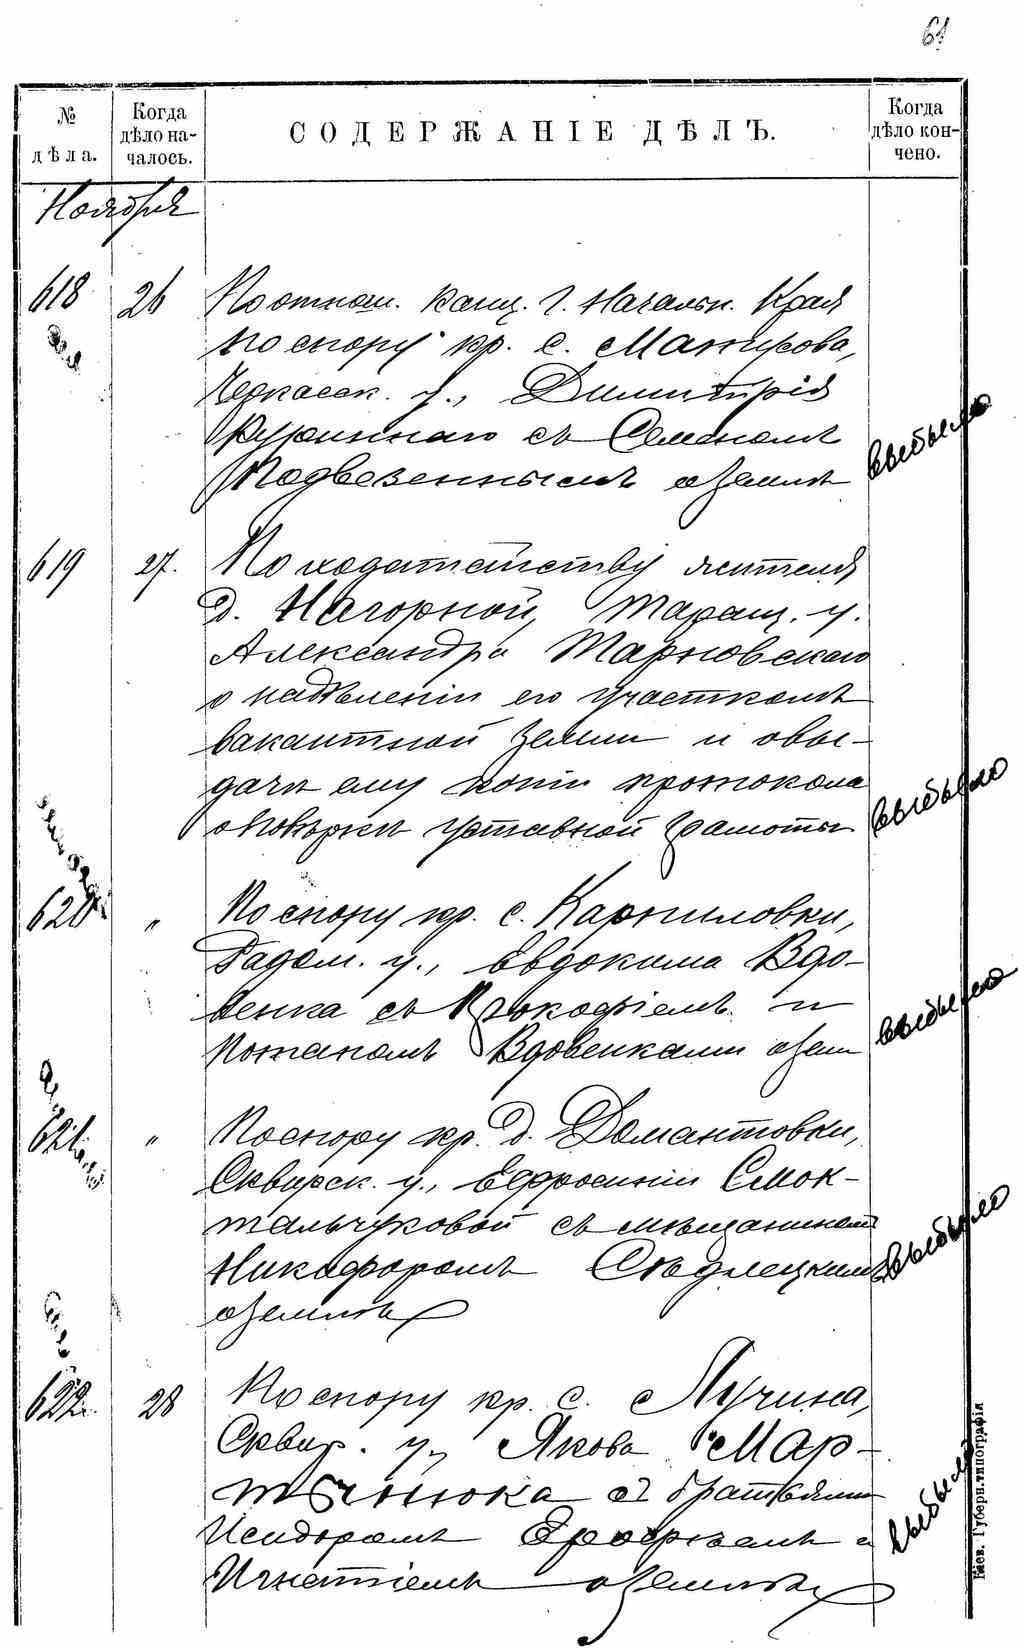 61
№ дѣла.
Когда дѣло началось.
СОДЕРЖАНІЕ ДѢЛЪ.
Когда дѣло кончено.
Ноября
618 26 По отнош. канц. г. Начальн. Края
по спору кр. с.
Черкасск. у., Димитрія
съ Семеномъ
Подвезеннымъ о землѣ
выбыло
619 27. По ходатайству жителя
д. Нагорной, Таращ. у.
Александра Тарновскаго
о надѣленіи его участкомъ
вакантной земли и о вы-
дачи ему копіи протокола
о повѣркѣ уставной грамоты
выбыло
620 " По спору кр. с. Карпиловки,
Радом. у., Евдокима Вдо-
венка съ Прокофіемъ и
Потапомъ Вдовенками о земл
выбыло
621 " По спору кр. д. Домантовки,
Сквирск. у., Ефросиніи Смок-
тальчуковой съ мѣщаниномъ
Никифоромъ Сѣдлецкимъ
о землѣ
выбыло
622 28 По спору кр. с. Лучина,
Сквир. у., Якова Мар-
тынюка съ братьями
Исидоромъ и
Игнатіемъ о землѣ
выбыло
Кіев. Губерн. типографія